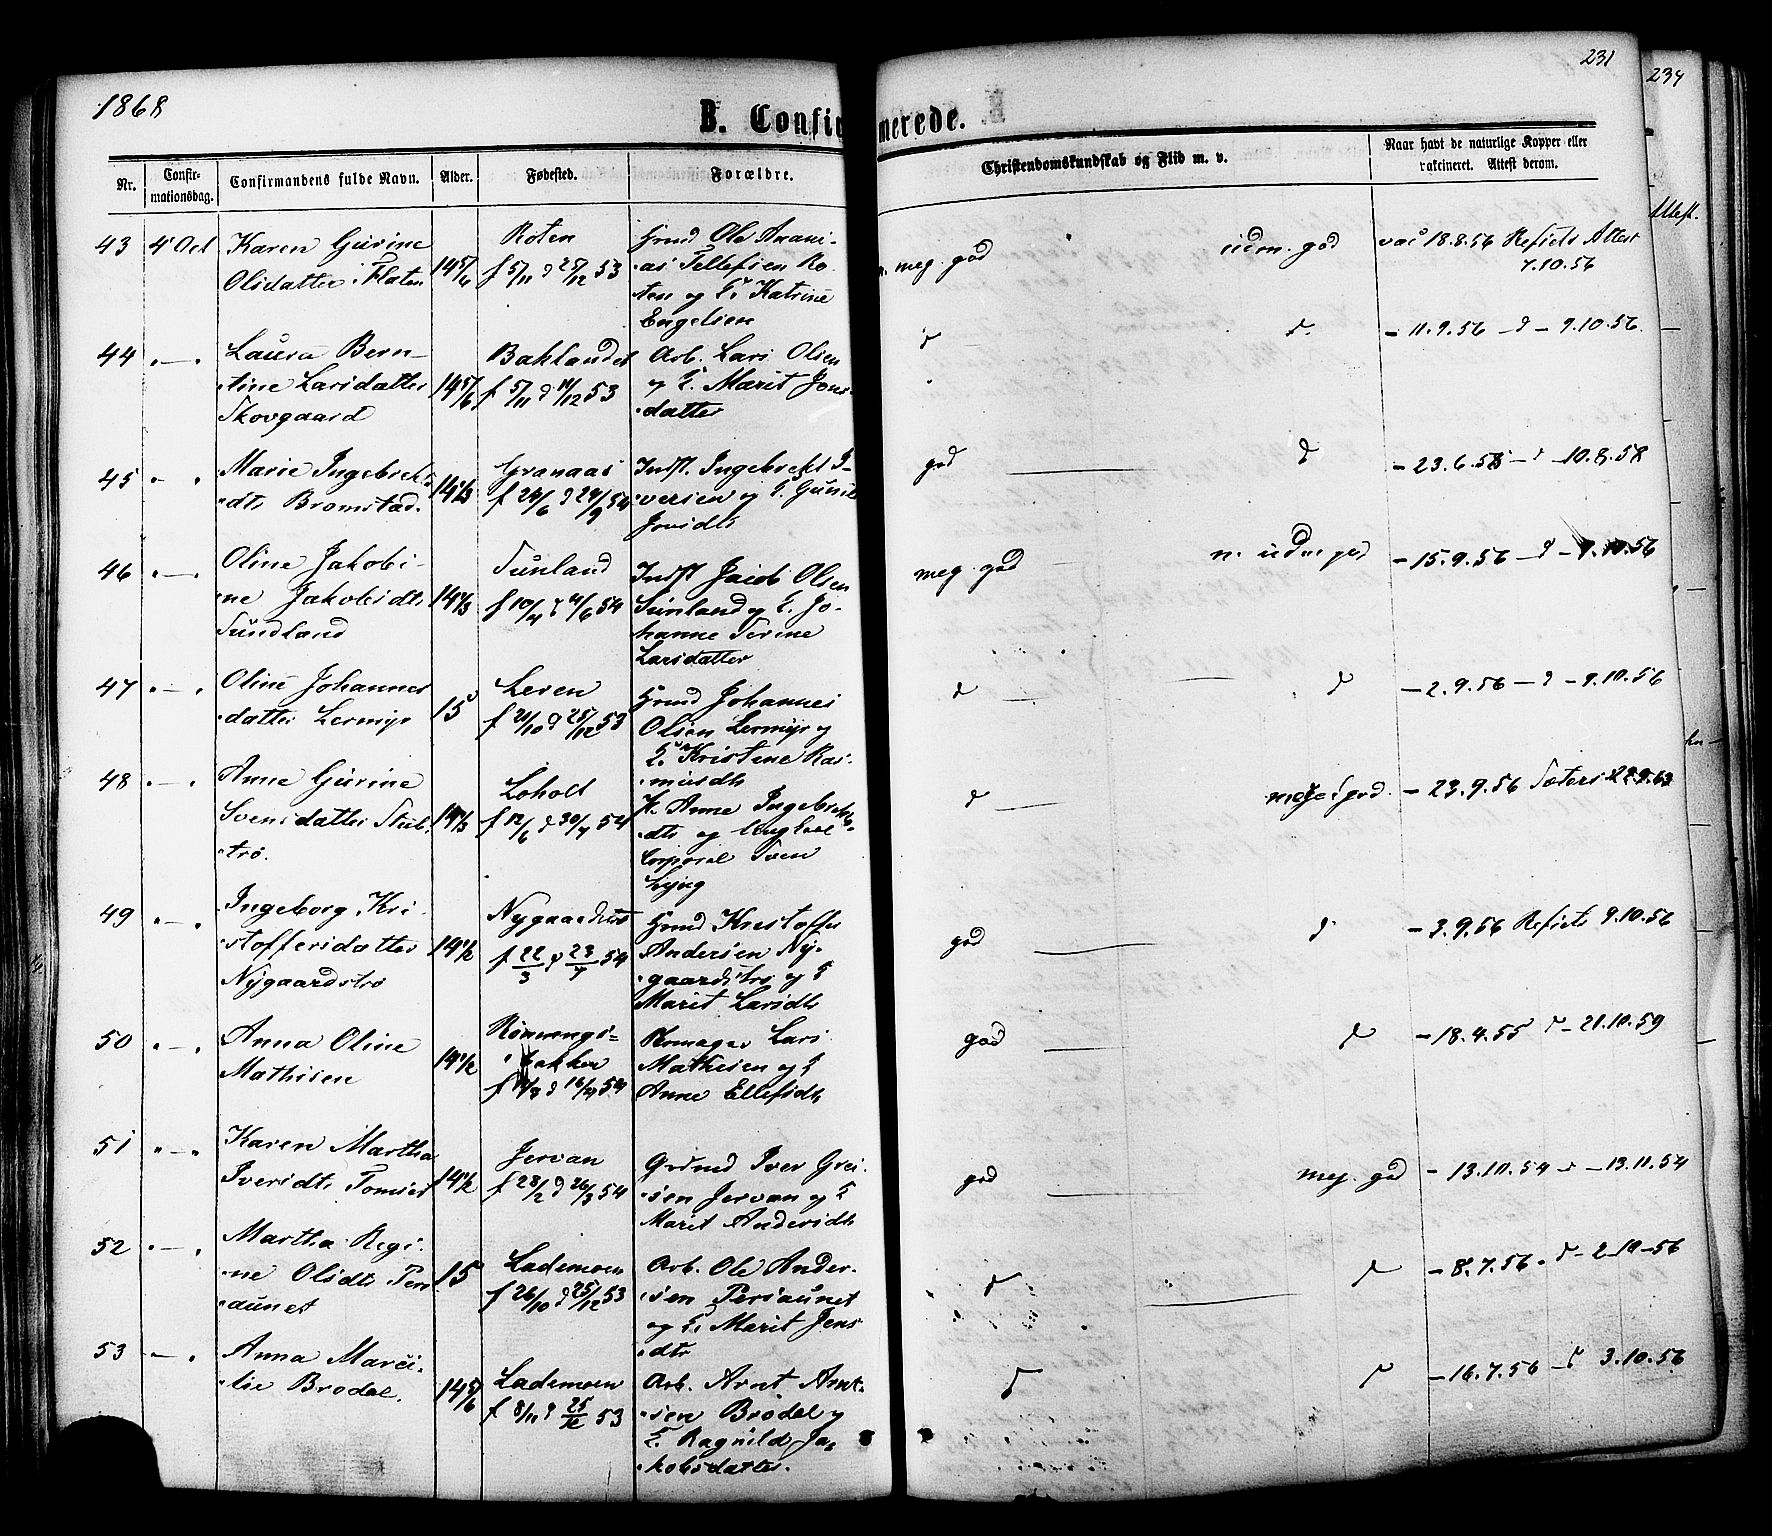 1868
231
234
B. Confirmerede.
Nr.
Confir-
mationsdag.
Confirmandens fulde Navn.
Alder.
Fødested.
Forældre.
Christendomskundskab og Flid m. v.
Naar havt de naturlige Kopper eller
vakcineret. Attest derom.
Attest.
43 4 Oct Karen Gurine
Olsdatter Flaten
14 5/6
Roten
f 5/11 d 25/12 53
Grmd Ole Anani-
as Tellefsen Ro-
ten og H. Katrine
Engelsen
meg. god
udm. god
vac 18.8.56 Refists Attest
7.10.56
44 " — " Laura Bern-
tine Larsdatter
Skovgaard
14 5/6
Baklandet
f 5/11 d 11/12 53
Arb. Lars Olsen
og H. Marit Jons-
datter
d
d.
- 11.9.56 - d - 9.10.56
45 " — " Marie Ingebrekts
dtr Bromstad.
14 1/3
Granaas
f 26/6 d 24/9 54
Indst. Ingebrekt I-
versen og H.
Jonsdtr
god
d
- 23.6.58 - d - 10.8.58
46 " — " Oline Jakobi-
ne Jakobsdtr
Sundland
14 1/3
Sunland
f 10/4 d 11/6 54
Indst Jacob Olsen
Sunland og H. Jo-
hanne Serine
Larsdatter
meg. god
n. udm god
- 15.9.56 - d - 9.10.56
47 " — " Oline Johannes
datter Lermyr
15
Leren
f 21/10 d 25/12 53
Grmd Johannes
Olsen Lermyr og
H. Kristine Ras-
musdtr
d
d
- 2.9.56 - d - 9.10.56
48 " — " Anne Gurine
Svensdatter Stub-
tro.
14 1/3
Loholt
f 12/6 d 30/7 54
P. Anne Ingebrekts
dtr og Ungkarl
Corporal Sven
Lyng
d
meget god.
- 23.9.56 Sæters 22.9.63
49 " — " Ingeborg Kri-
stoffersdatter
Nygaardstrø
14 1/2
Nygaardstrø
f 22/3 d 23/4 54
Grmd Kristoffer
Andersen Ny-
gaardstrø og H
Marit Larsdtr
god
d
- 3.9.56 Refists 9.10.56
50 " — " Anna Oline
Mathisen
14 1/2
Rønnings-
bakken
53
Lars
Mathisen og H
Anne Ellefsdtr
god
d
- 18.4.55 d - 21.10.59
51 " — " Karen Martha
Iversdtr Tomset
14 1/2
Jervan
f 28/2 d 26/3 54
Grdmd Iver Grei-
sen Jervan og H
Marit Andersdtr
god
meg. god
- 13.10.54 d - 13.11.54
52 " — " Martha Regi-
ne Olsdtr Pers
aunet
15
Lademoen
f 26/10 d 25/12 53
Arb. Ole Ander-
sen Persaunet
og H. Marit Jens
dtr
d
d
- 8.7.56. d - 2-10-56
53 — " Anna
Brødal.
14 5/6
Lademoen
f 8/11 d 25/12 53
Arb. Arnt Arnt-
sen Brødal og
H. Ragnild Ja-
kobsdatter.
d
d
- 16.7.56 - d 3.10.56